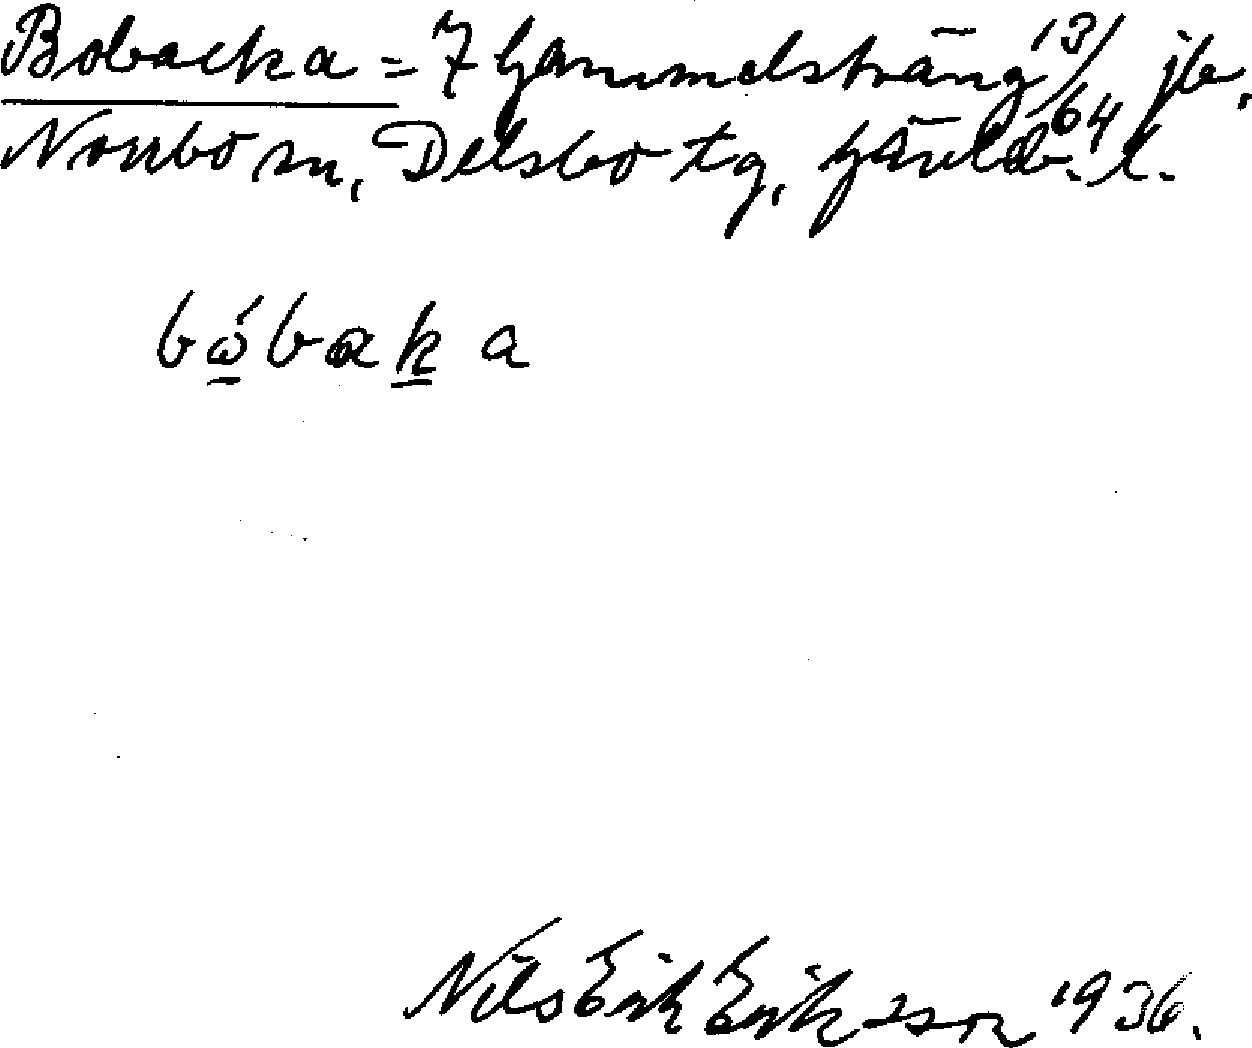 Bobacka = 7 Gammelsträng 13/64 jb,
Norrbo sn, Delsbo tg, Gävleb. l.
bóbaka
Nils Erik Eriksson 1936.